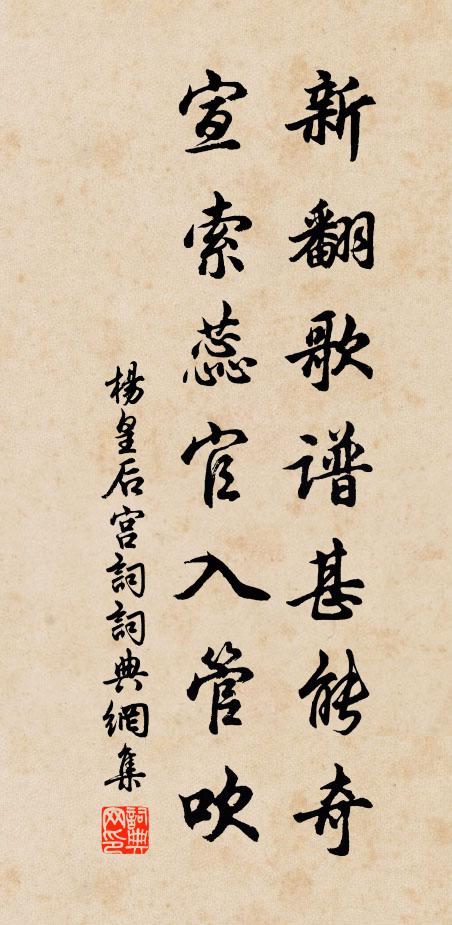 新翻歌譜甚能奇
宣索蕊官入管吹
楊皇后宮詞詞典網集
詞典网印